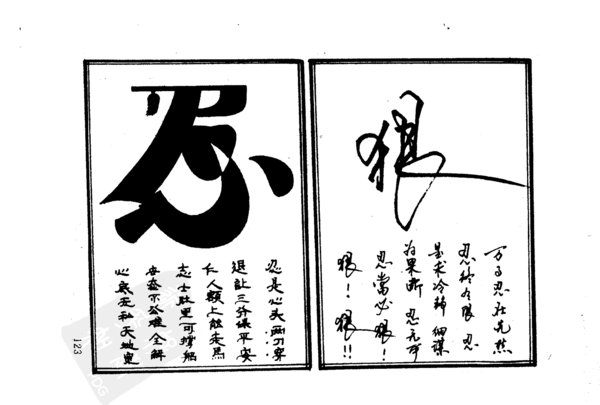 狠
万事忍在先然
忍终有限 忍
是求冷静 细谋
为果断 忍无可
忍當必狠!
狠! 狠!!
忍
忍是心头两刀穿
退让三分保平安
仁人额上能走马
志士肚里可撑船
不公难全解
心底无私天地宽
123